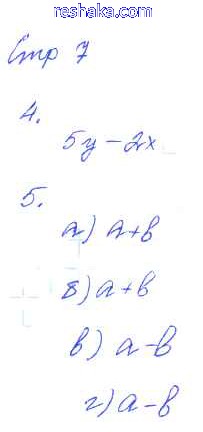 www.reshaka.com
Стр 7
4.
5y-2x
5.
а) a+b
б) a+b
в) a-b
г) a-b